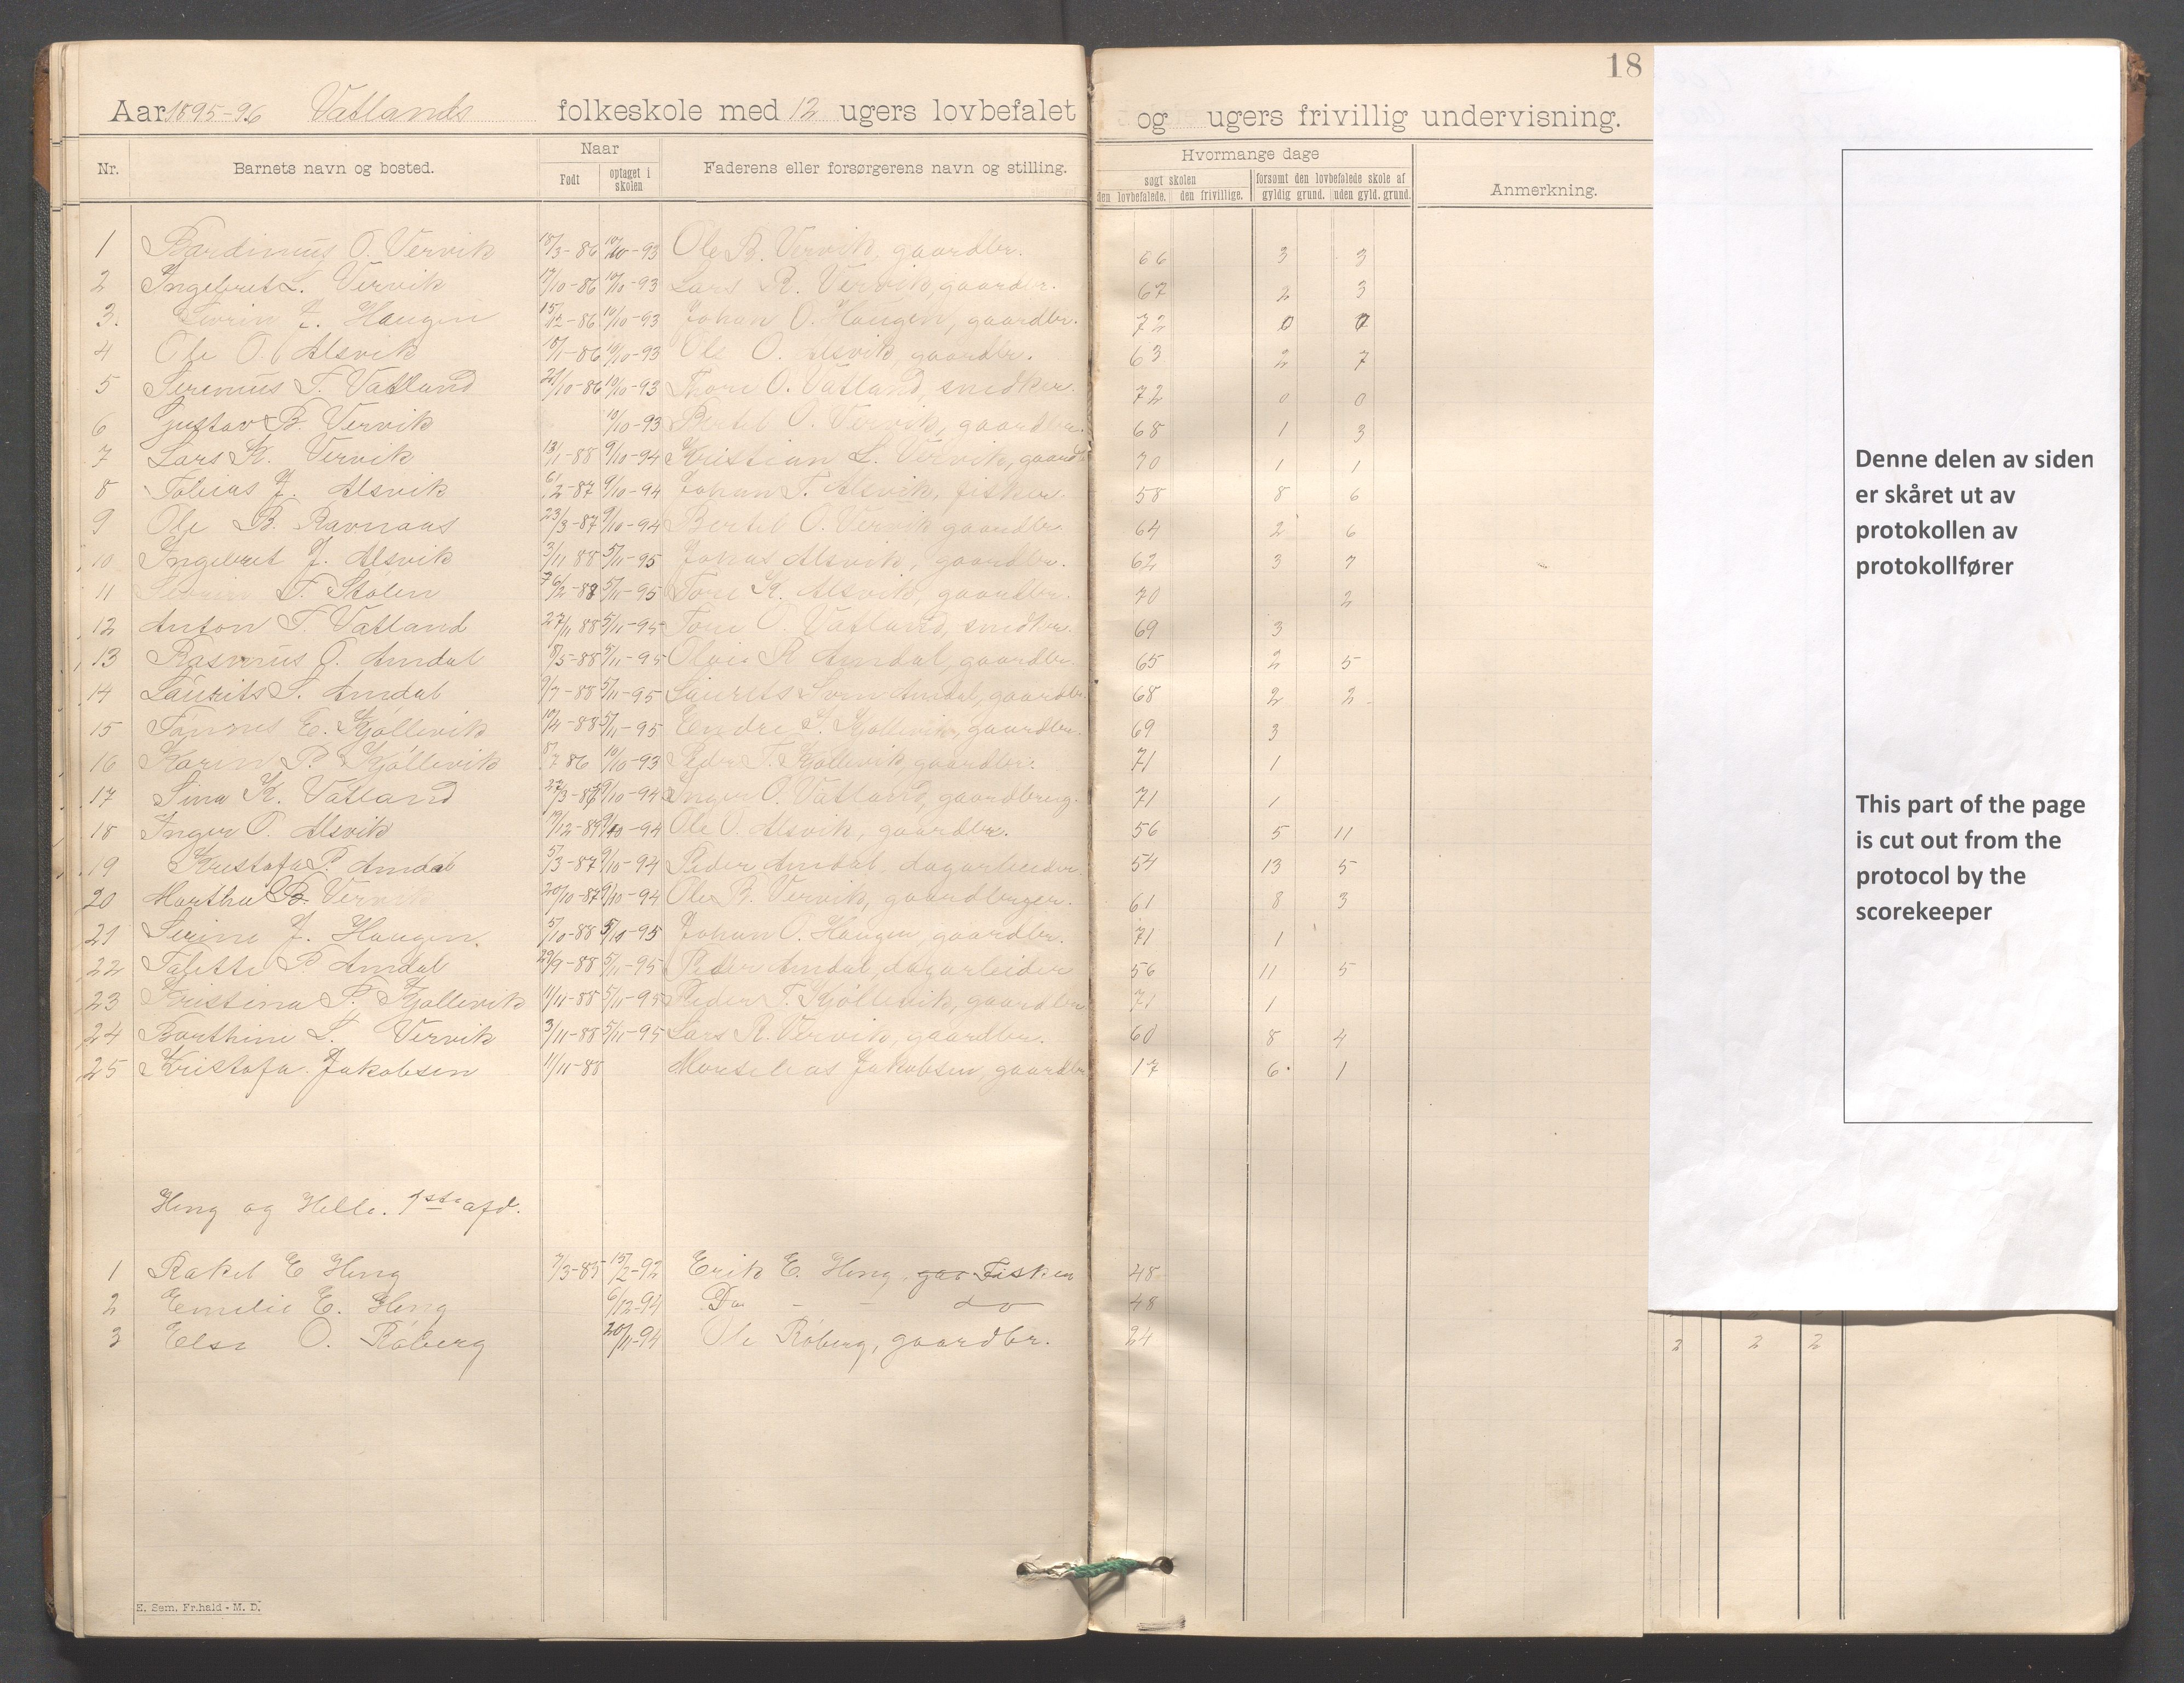 18
Aar 1895-96 Vatlands folkeskole med 12 ugers lovbefalet og ugers frivillig undervisning.
Nr. Barnets navn og bosted. Naar Født optaget i skolen Faderens eller forsørgerens navn og stilling. Hvormange dage søgt skolen den lovbefalede. den frivillige. forsømt den lovbefalede skole af gyldig grund. uden gyld. grund. Anmerkning.
1 Bardinius O. Vervik 18/3-86 10/10-93 Ole B. Vervik, gaardbr. 66 3 3
2 Ingebret L. Vervik 17/10-86 10/10-93 Lars R. Vervik, gaardbr. 67 2 3
3. Sivrin J. Haugen 15/12-86 10/10-93 Johan O. Haugen, gaardbr. 72 0 0
4 Ole O. Alsvik 18/1-86 10/10-93 Ole O. Alsvik, gaardbr. 63 2 7
5 Serenius T. Vatland 21/10-86 10/10-93 Tore O. Vatland, snedker. 72 0 0
6 Gustav B. Vervik 10/10-93 Bertel O. Vervik, gaardbr. 68 1 3
7 Lars K. Vervik 13/1-88 9/10-94 Kristian L. Vervik, gaardb 70 1 1
8 Tobias J. Alsvik 6/2-87 9/10-94 Johan T. Alsvik, fisker. 58 8 6
9 Ole B. Ravnaas 23/3-87 9/10-94 Bertel O. Vervik gaardbr. 64 2 6
10 Ingebret J. Alsvik 3/11 88 5/11-95 Jonas Alsvik, gaardbr. 62 3 7
11 T. Stølen 6/2-88 5/11-95 Tore K. Alsvik, gaardbr. 70 2
12 Anton T. Vatland 27/11 88 5/11-95 Tore O. Vatland, snedker. 69 3
13 Rasmus O. Amdal 8/5-88 5/11-95 R Amdal, gaardbr. 65 2 5
14 Laurits S. Amdal 9/7-88 5/11-95 Amdal, gaardbr 68 2 2
15 E. Kjøllevik 10/4-88 5/11-95 Endre S. Kjøllevik, gaardbr. 69 3
16 Karin P. Kjøllevik 8/7 86 10/10-93 Peder T. Kjøllevik gaardbr. 71 1
17 Sina K. Vatland 9/10-94 Inger O. Vatland, gaardbrug. 71 1
18 Inger O. Alsvik 9/10-94 Ole O. Alsvik, gaardbr. 56 5 11
19 Kristofa P. Amdal 5/3-87 9/10-94 Peder Amdal, dagarbeider. 54 13 5
20 Martha B. Vervik 20/10-87 9/10-94 Ole B. Vervik, gaardbruger. 61 8 3
21 Serine J. Haugen. 5/10-88 5/10-95 Johan O. Haugen, gaardbr. 71 1
22 Tabitte P Amdal 29/9-88 5/11-95 Peder Amdal, dagarbeider 56 11 5
23 Kristina P. Kjøllevik 1/11-88 5/11-95 Peder T. Kjøllevik, gaardbr 71 1
24 Barthine L. Vervik 3/11-88 5/11-95 Lars R. Vervik, gaardbr. 60 8 4
25 Kristofa Jakobsen 11/11-88 Jakobsen gaardbr 17 6 1
Heng og Helle. 1ste afd.
1 Rakel E Heng 7/3-85 15/2-92 Erik E. Heng, gar Fisker 48
2 Emelie E. Heng 6/12-94 Do - - do 48
3 Else O. Røberg 20/11-94 Ole Røberg, gaardbr. 24 2 2 2
E. Sem, Fr.hald - M. D.
Denne delen av siden
er skåret ut av
protokollen av
protokollfører
This part of the page
is cut out from the
protocol by the
scorekeeper